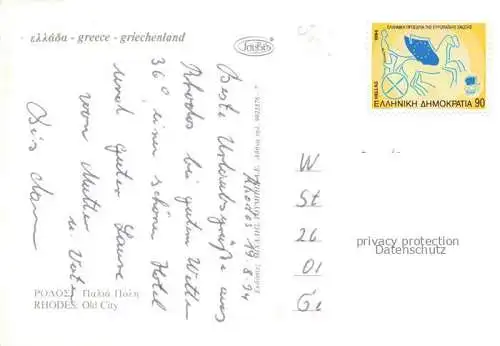 ελλάδα - greece - griechenland
Rhodos 19.8.94
Beste Urlaubsgrüße aus
Rhodos bei gutem Wetter
36°, einer schöne Hotel
und guter Laune
von Mutter
u. Vater
Bis dann
ΡΟΔΟΣ: Παλιά Πόλη
RHODES: Old City
ΕΛΛΗΝΙΚΗ ΠΡΟΕΔΡΙΑ ΤΗΣ ΕΥΡΩΠΑΪΚΗΣ ΕΝΩΣΕΩΣ
1994
HELLAS
ΕΛΛΗΝΙΚΗ ΔΗΜΟΚΡΑΤΙΑ 90
W
St
26
01
Ge
privacy protection
Datenschutz